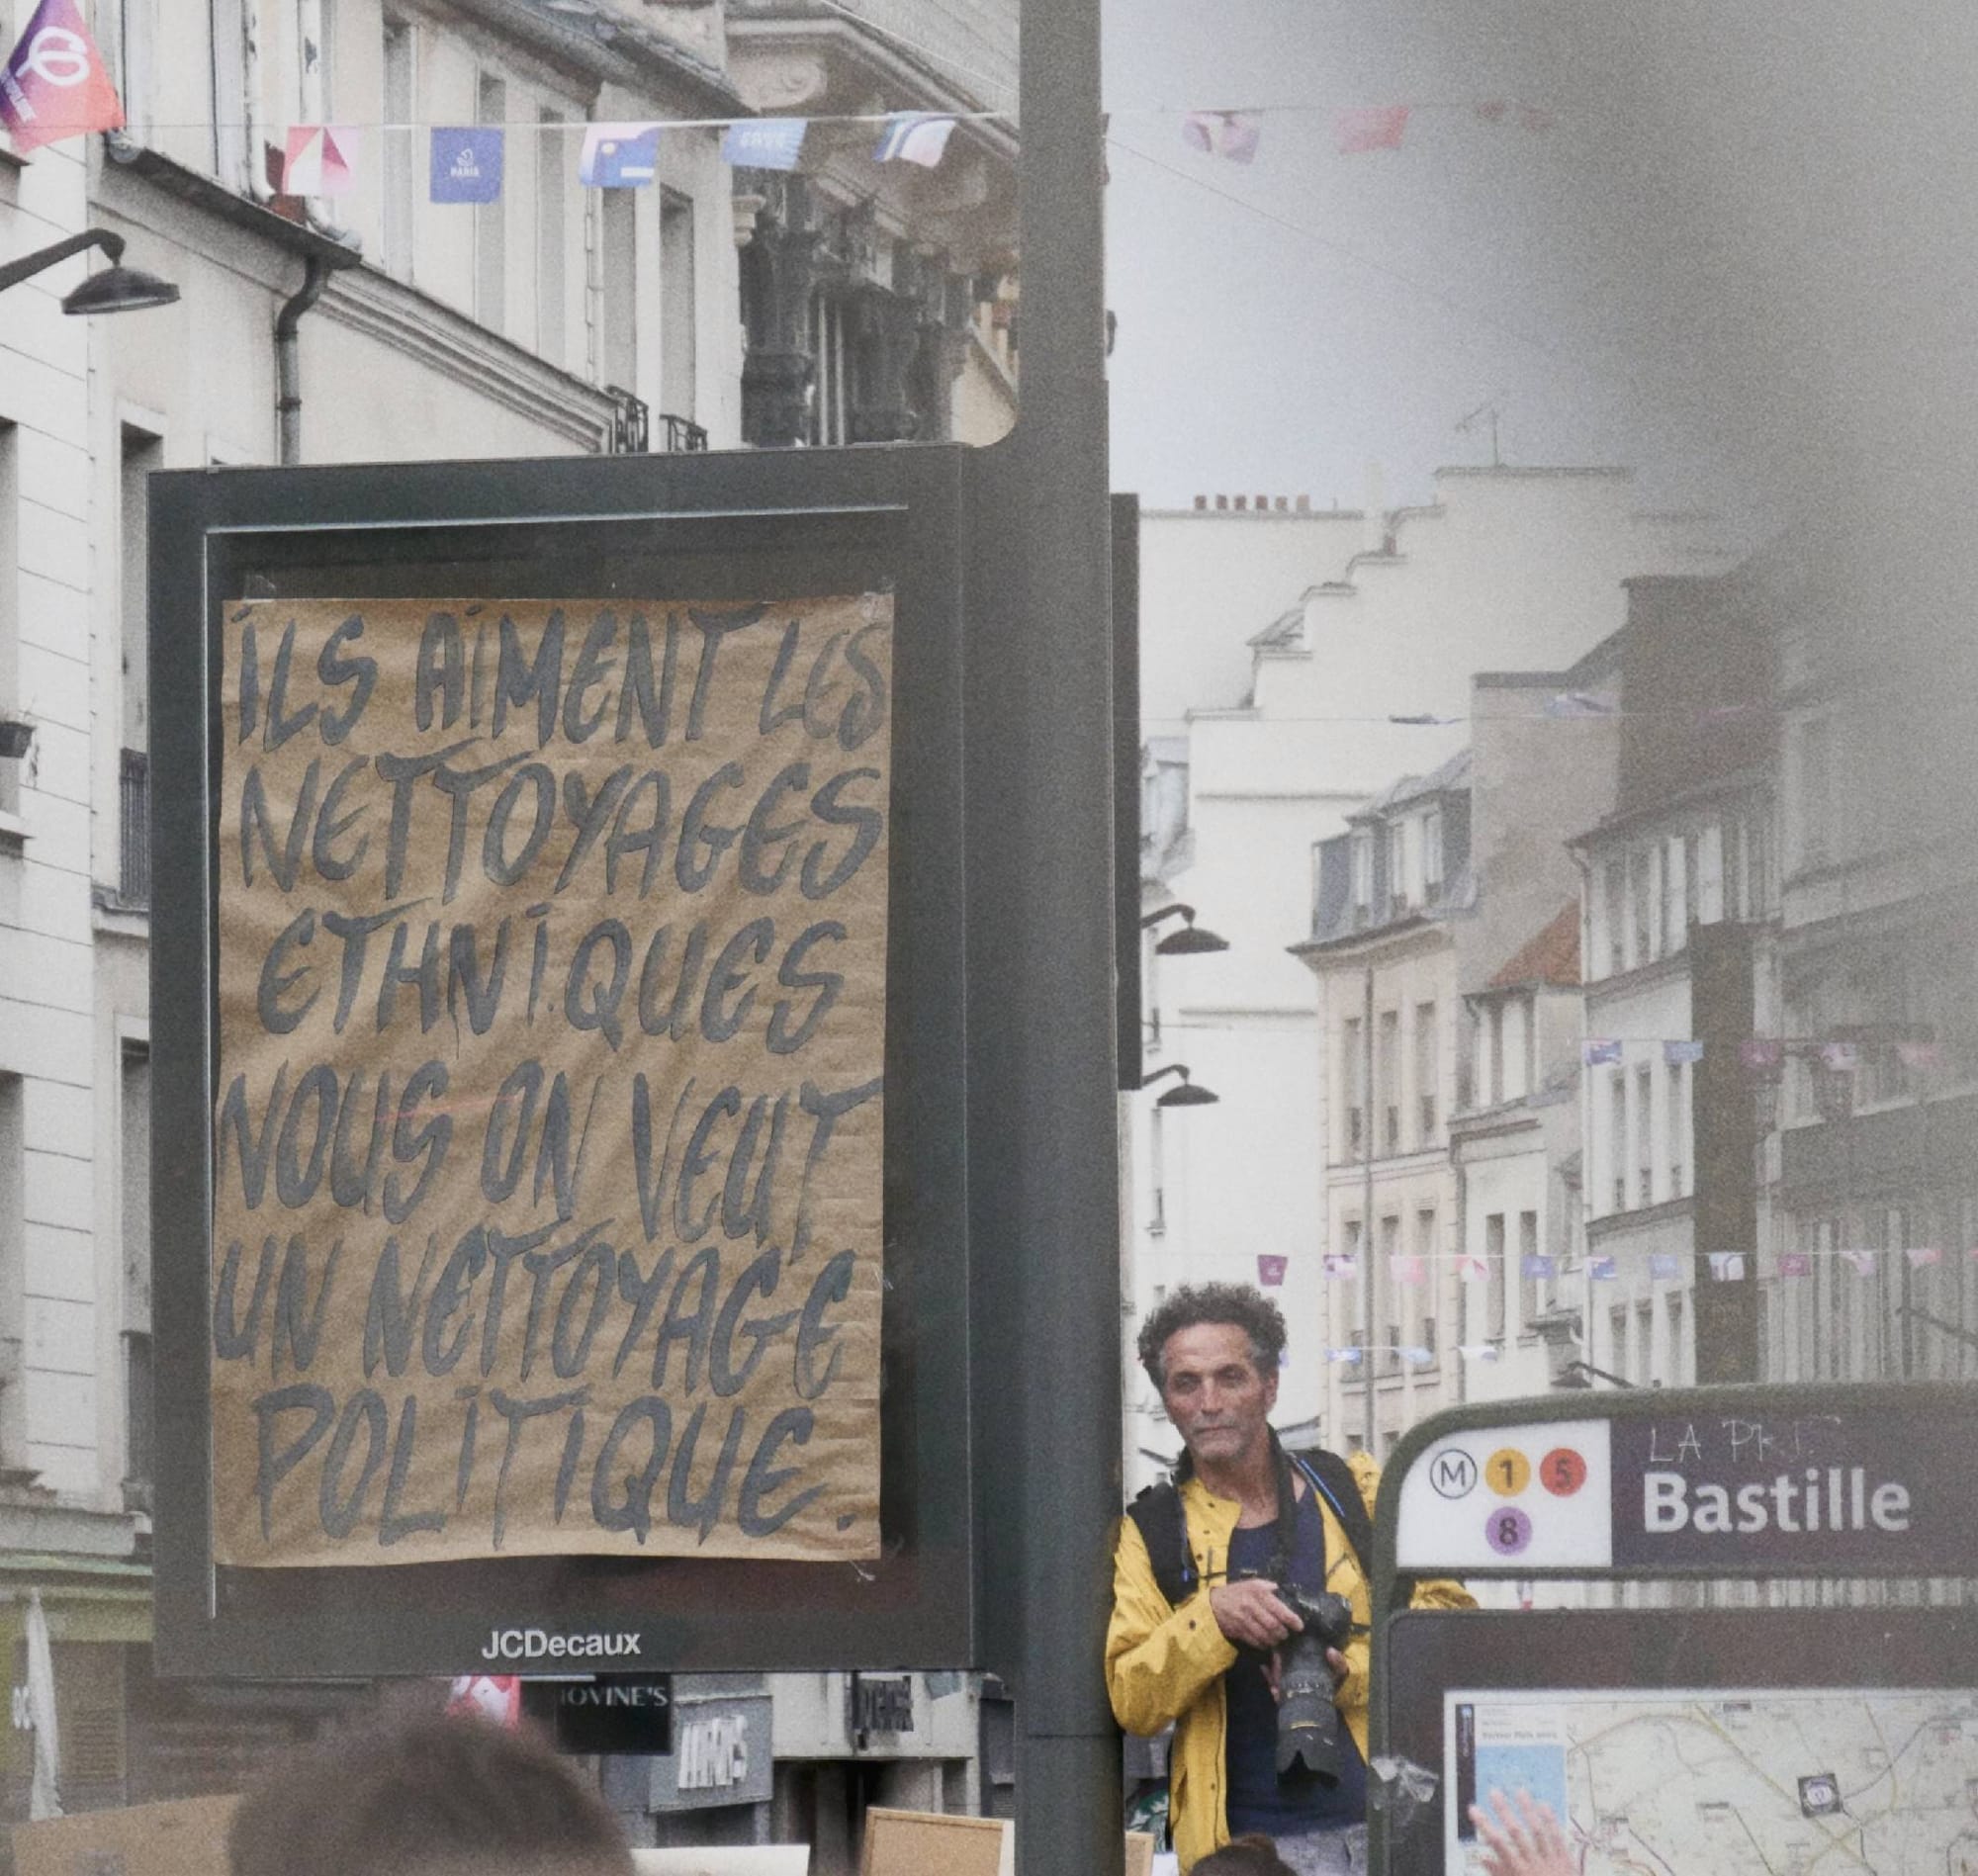 iLS AiMENT LES
NETTOYAGES
ETHNiQUES
NOUS ON VEUT
UN NETTOYAGE
POLiTiQUE.
JCDecaux
PARIS
M 1 5
8
LA
Bastille